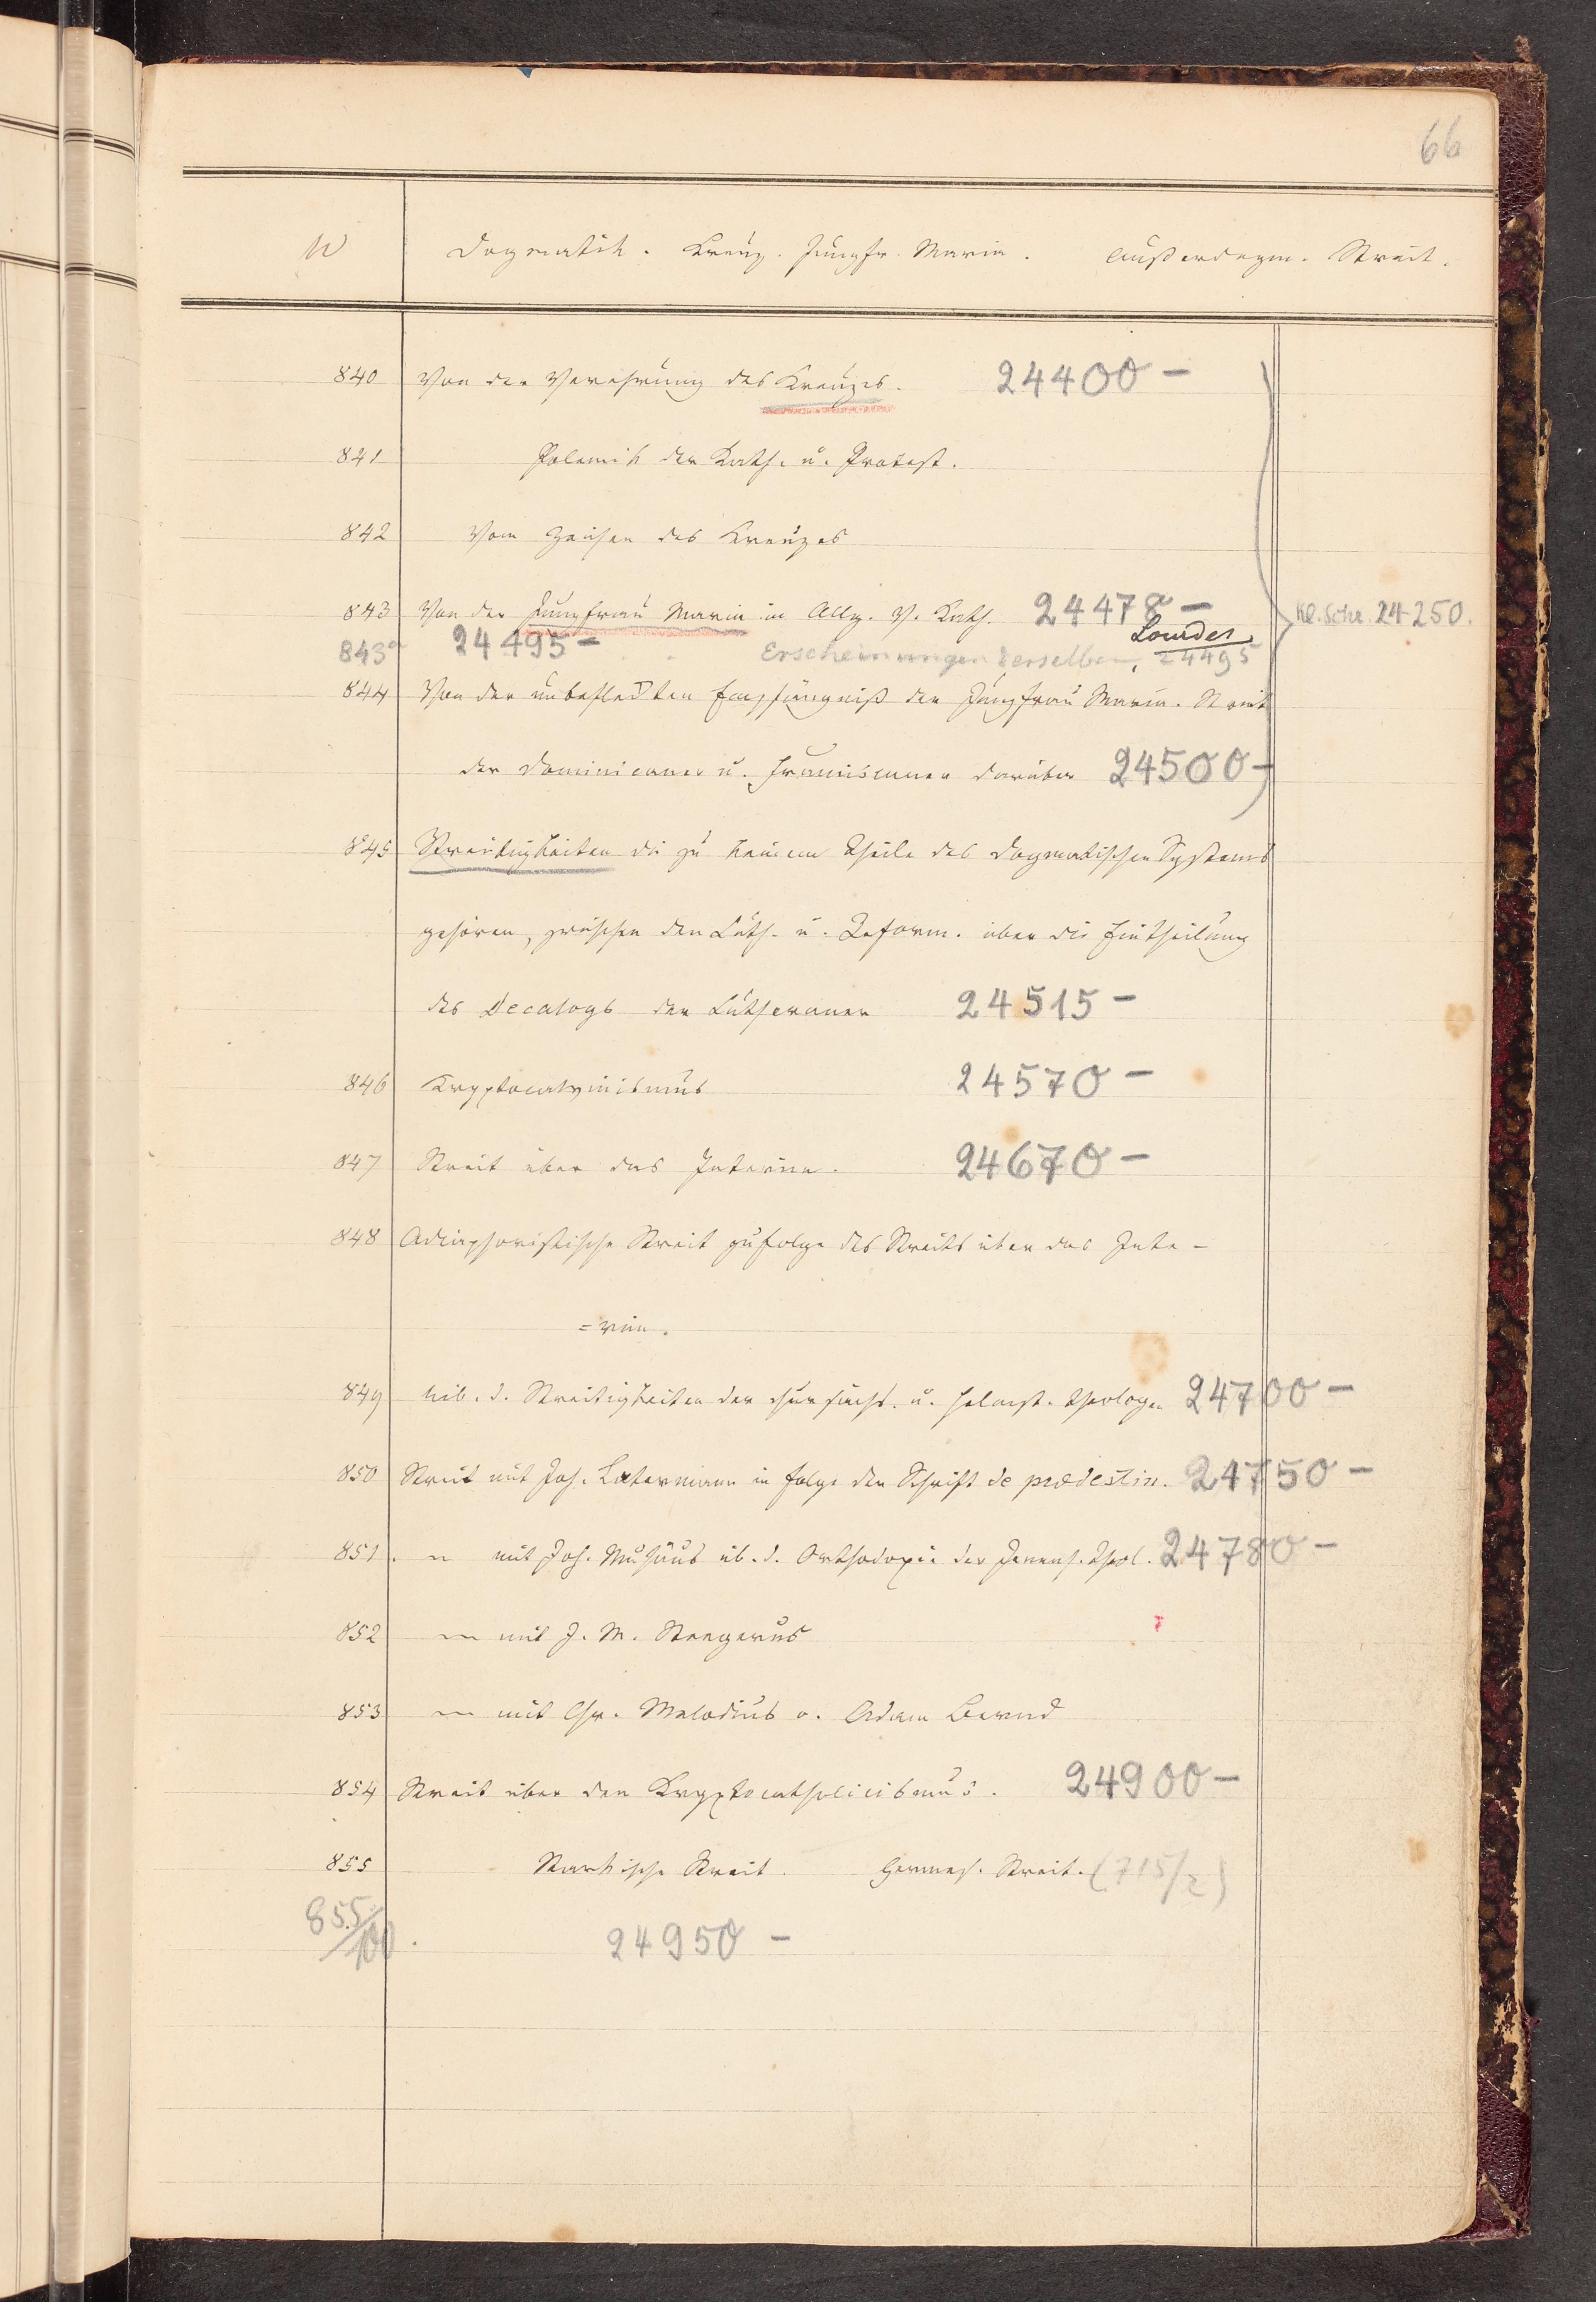 66
Dogmatik. Kreuz. Jungfr. Maria. Außerdogm. Streit.
840 Von der Verehrung des Kreuzes. 24400 -
841 Polemik der Kath. u. Protest.
842 Vom Zeichen des Kreuzes
843 Von der Jungfrau Maria im Allg. V. Kath. 24478 - Kl. Schr. 24250.
Lourdes
843a 24495 - Erscheinungen derselben, 24495
844 Von der unbefleckten Empfängniß der Jungfrau Maria. Streit
der Dominicaner u. Franciscaner darüber 24500 -
845 Streitigkeiten die zu keinem Theile des dogmatischen Systems
gehören, zwischen den Luth. u. Reform. über die Eintheilung
des Decalogs der Lutheraner 24515 -
846 Kryptocalvinismus 24570 -
847 Streit über das Interim. 24670 -
848 Adiaphoristische Streit zufolge des Streits über das Inte-
=rim.
849 üb. d. Streitigkeiten der chursächs. u. helmst. Theologen 24700 -
850 Streit mit Joh. Latermann in Folge der Schrift de prædestin. 24750 -
851 " mit Joh. Musäus üb. d. Orthodoxie der Jenens. Theol. 24780 -
852 " mit J. M. Stengerus
853 " mit Chr. Melodius o. Adam Bernd
854 Streit über den Kryptocatholicismus. 24900 -
855 Starkische Streit. Hermes. Streit. (715/2)
855/100. 24950 -